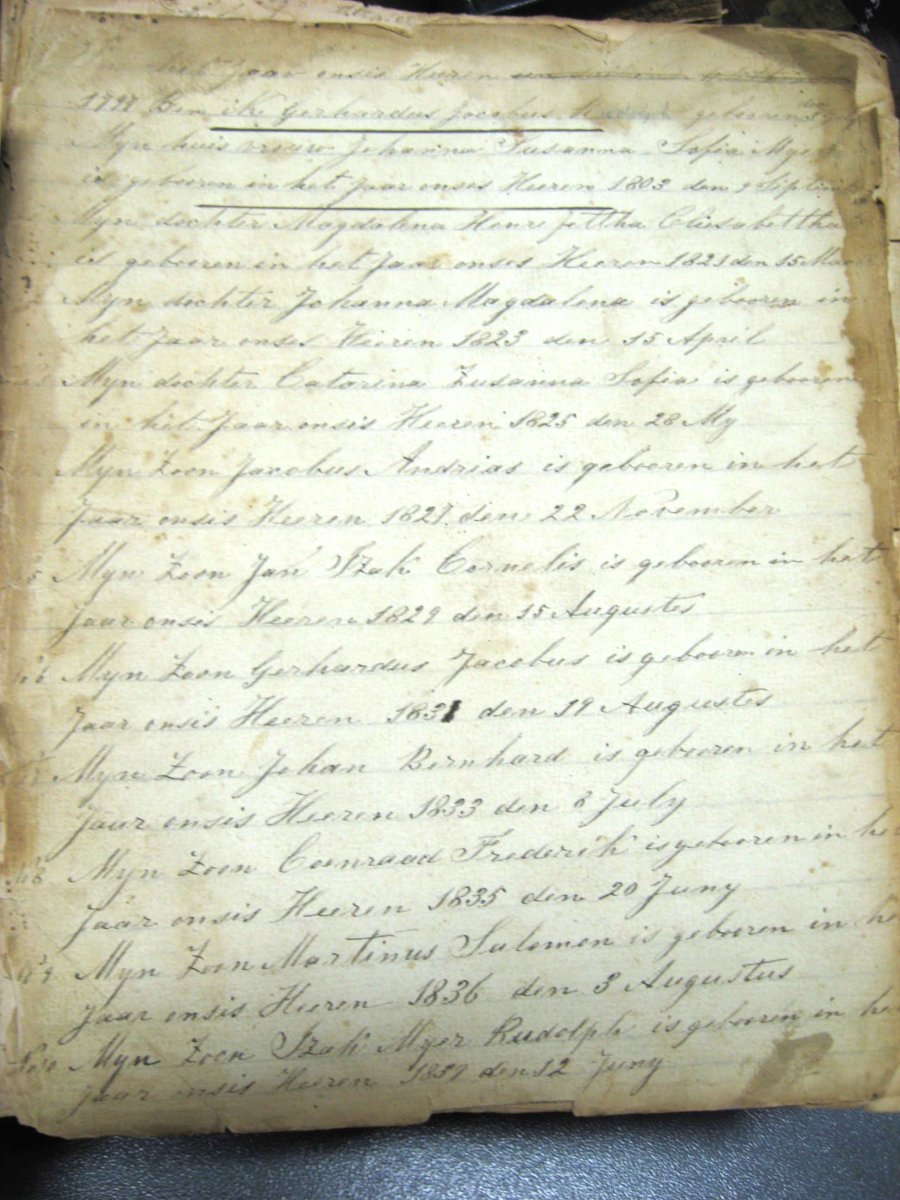 het Jaar onsis Heeren
1797 Ben ik Gerhardus Jacobus Rudolph gebooren den
Myn huis vrouw Johanna Susanna Sofia Myer
is gebooren in het Jaar onses Heeren 1803 den 9 Septem
Myn dochter Magdalena Henri Jettha Eliesabettha
is gebooren in het Jaar onses Heeren 1821 den 15
Myn dochter Johanna Magdalena is gebooren in
het Jaar onses Heeren 1823 den 15 April
Myn dochter Catarina Zusanna Sofia is gebooren
in het Jaar onsis Heeren 1825 den 28 My
Myn Zoon Jacobus Andrias is gebooren in het
Jaar onsis Heeren 1827 den 22 November
5 Myn Zoon Jan Izak Cornelis is gebooren in het
Jaar onsis Heeren 1829 den 15 Augustes
No 6 Myn Zoon Gerhardus Jacobus is gebooren in het
Jaar onsis Heeren 1831 den 19 Augustes
Myn Zoon Johan Bernhard is gebooren in het
Jaar onsis Heeren 1833 den 8 July
No 8 Myn Zoon Coenraad Frederik is gebooren in het
Jaar onsis Heeren 1835 den 20 Juny
No 9 Myn Zoon Martinus Salomon is gebooren in he
Jaar onsis Heeren 1836 den 3 Augustus
No 10 Myn Zoon Izak Myer Rudolph is gebooren in he
Jaar onsis Heeren 1839 den 12 Juny